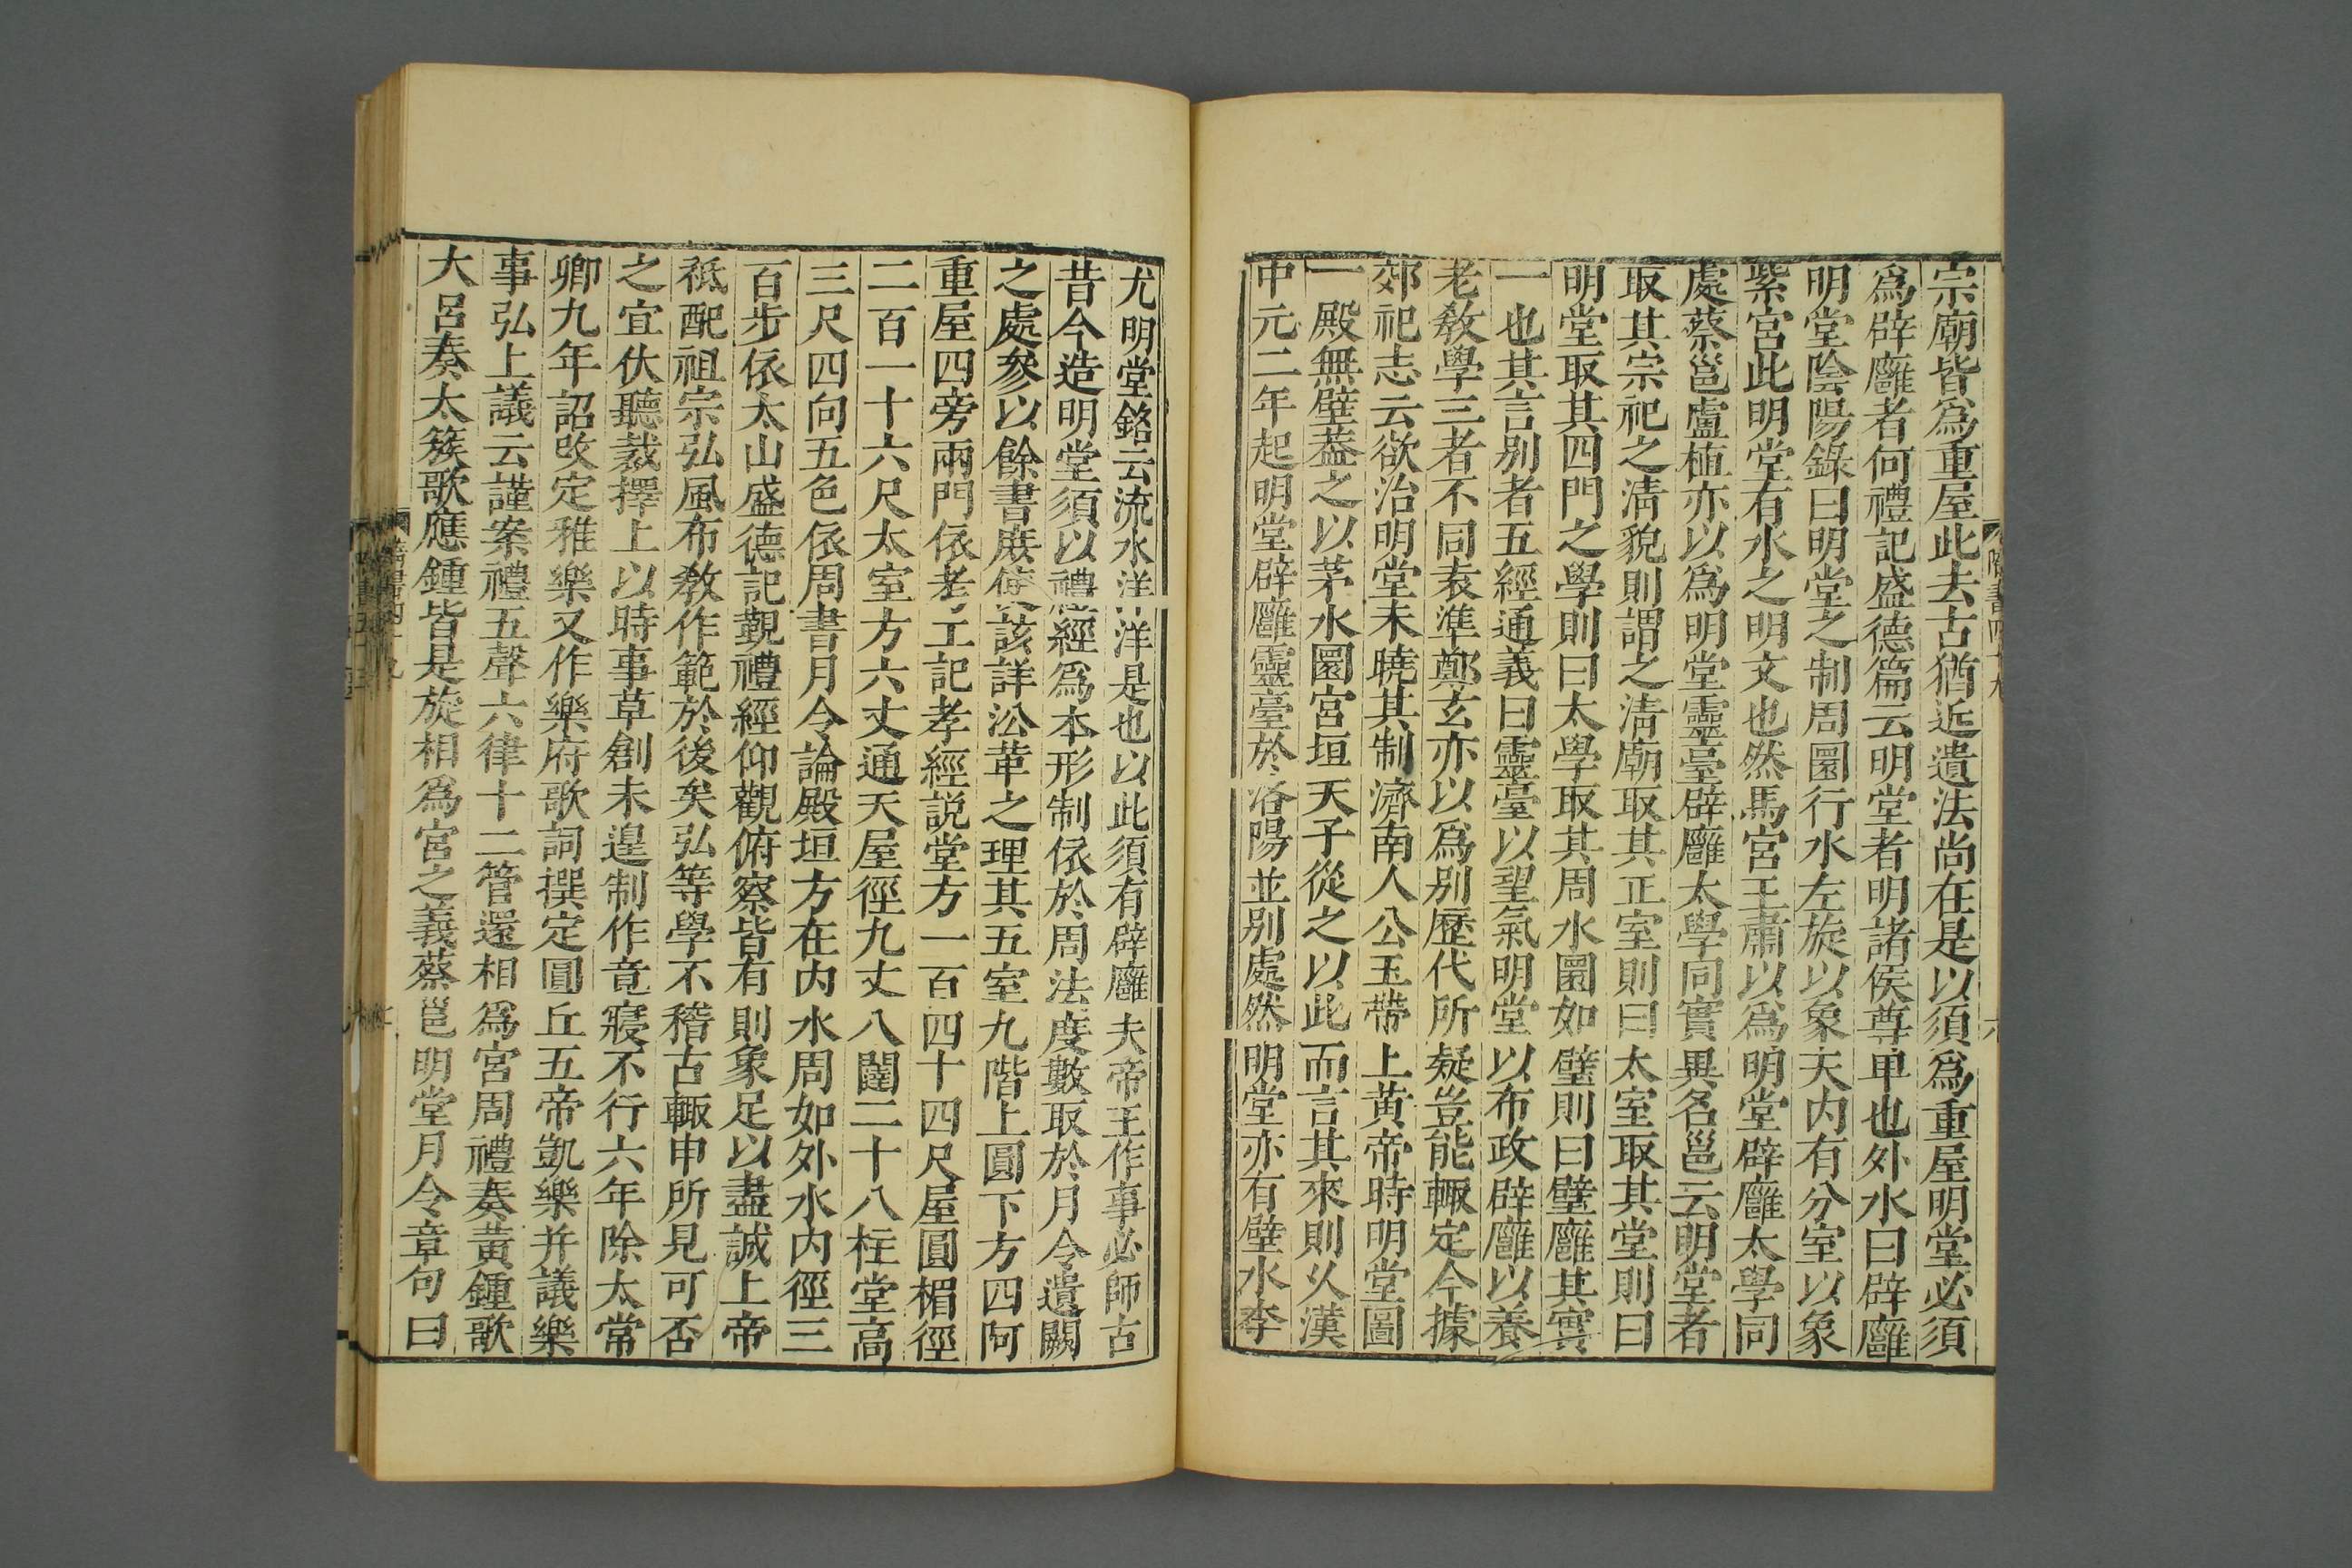 宗廟皆爲重屋此去古猶近遺法尚在是以須爲重屋明堂必須
爲辟廱者何禮記盛德篇云明堂者明諸侯尊卑也外水曰辟廱
明堂陰陽錄曰明堂之制周圜行水左旋以象天内有分室以象
紫宮此明堂有水之明文也然馬宮王肅以爲明堂辟廱太學同
處蔡邕盧植亦以爲明堂靈臺辟廱太學同實異名邕云明堂者
取其宗祀之淸貌則謂之淸廟取其正室則曰太室取其堂則曰
明堂取其四門之學則曰太學取其周水圜如璧則曰璧廱其實
一也其言别者五經通義曰靈臺以望氣明堂以布政辟廱以養
老敎學三者不同袁準鄭玄亦以爲别歷代所疑豈能輒定今據
郊祀志云欲治明堂未曉其制濟南人公玉帶上黄帝時明堂圖
一殿無壁葢之以茅水圜宮垣天子從之以此而言其來則乆漢
中元二年起明堂辟廱靈臺於洛陽並别處然明堂亦有壁水李
隋書四十九
六
尤明堂銘云流水洋洋是也以此須有辟廱夫帝王作事必師古
昔今造明堂須以禮經爲本形制依於周法度數取於月令遺闕
之處參以餘書庶使該詳沿革之理其五室九階上圓下方四阿
重屋四旁兩門依考工記孝經説堂方一百四十四尺屋圓楣徑
二百一十六尺太室方六丈通天屋徑九丈八闥二十八柱堂高
三尺四向五色依周書月令論殿垣方在内水周如外水内徑三
百步依太山盛德記覲禮經仰觀俯察皆有則象足以盡誠上帝
祗配祖宗弘風布敎作範於後矣弘等學不稽古輒申所見可否
之宜伏聽裁擇上以時事草創未遑制作竟寢不行六年除太常
卿九年詔改定雅樂又作樂府歌詞撰定圓丘五帝凱樂并議樂
事弘上議云謹案禮五聲六律十二管還相爲宮周禮奏黄鍾歌
大呂奏太簇歌應鍾皆是旋相爲宮之義蔡邕明堂月令章句曰